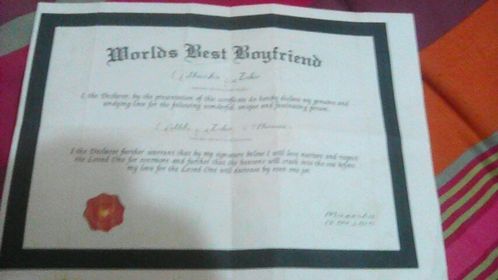 Worlds Best Boyfriend
I the Declarer, by the presentation of this certificate do hereby declare my genuine and
undying love for the following wonderful, unique and fascinating person.
I the Declarer further warrant that by my signature below I will love nurture and respect
the Loved One for evermore and further that the heavens will crash into the sea before
my love for the Loved One will decrease by even one jot.